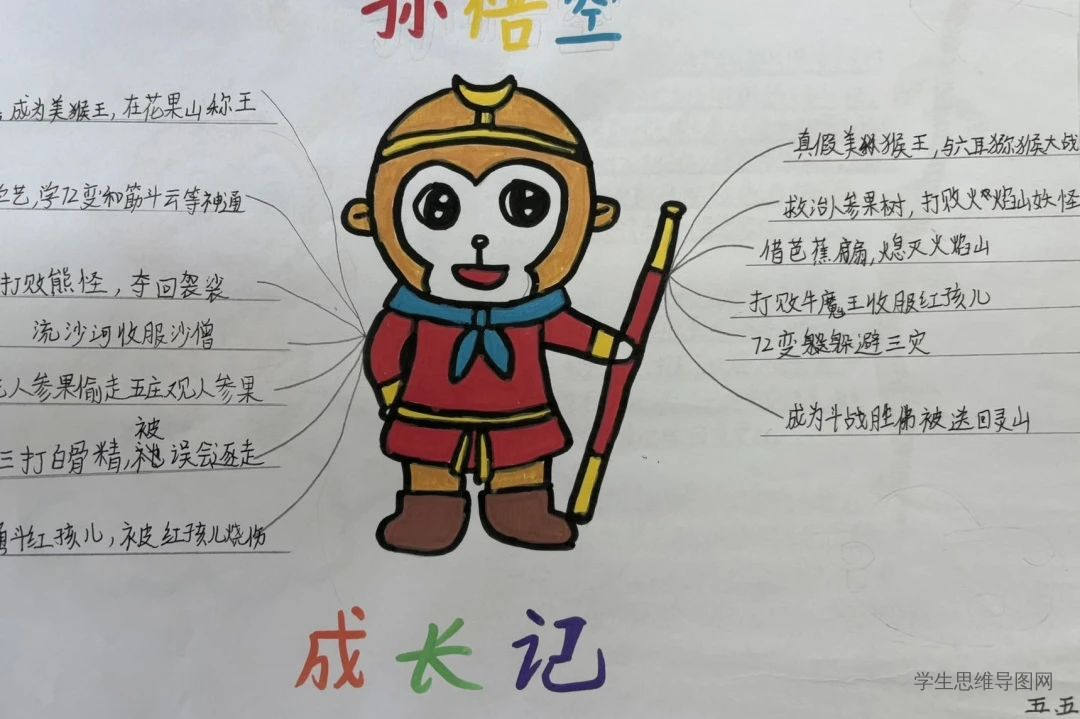 孙悟空
成为美猴王,在花果山称王
艺,学72变和筋斗云等神通
打败熊怪,夺回袈裟
流沙河收服沙僧
人参果偷走五庄观人参果
被
三打白骨精,祂误会逐走
斗红孩儿,被红孩儿烧伤
真假美猕猴王,与六耳猕猴大战
救治人参果树,打败火焰山妖怪
借芭蕉扇,熄灭火焰山
打败牛魔王收服红孩儿
72变躲避三灾
成为斗战胜佛被送回灵山
成长记
学生思维导图网
五.五